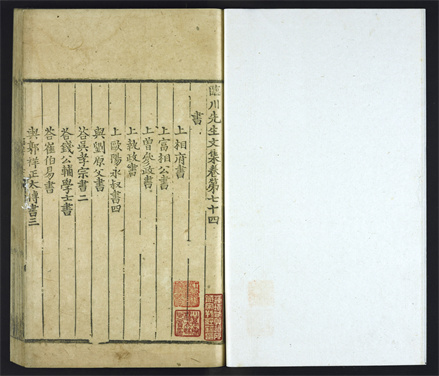 臨川先生文集卷第七十四
書
上相府書
上富相公書
上曾參政書
上執政書
上歐陽永叔書四
與劉原父書
答吳孝宗書二
答錢公輔學士書
答崔伯易書
與郭祥正太博書三